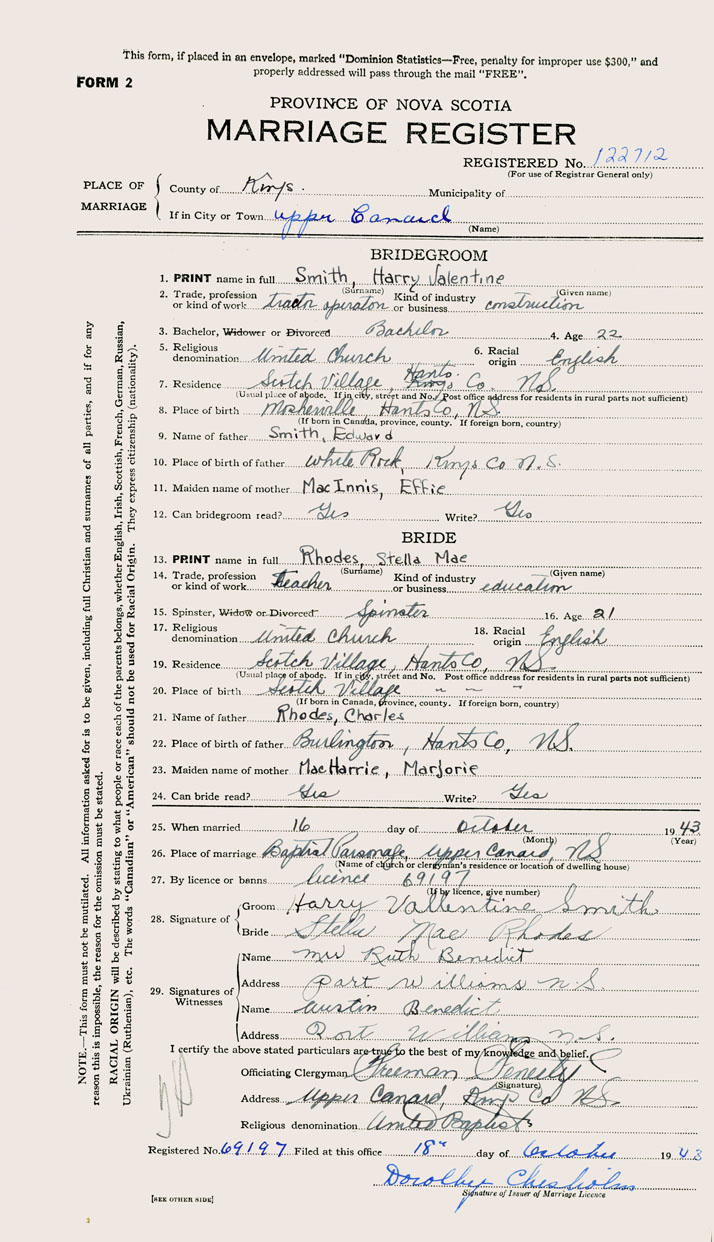 This form, if placed in an envelope, marked "Dominion Statistics—Free, penalty for improper use $300," and
properly addressed will pass through the mail "FREE".
FORM 2
PROVINCE OF NOVA SCOTIA
MARRIAGE REGISTER
REGISTERED No. 122712
(For use of Registrar General only)
PLACE OF MARRIAGE
County of Kings. Municipality of
If in City or Town Upper Canard
(Name)
BRIDEGROOM
1. PRINT name in full Smith, Harry Valentine
(Surname) (Given name)
2. Trade, profession or kind of work tractor operator Kind of industry or business construction
3. Bachelor, Widower or Divorced Bachelor 4. Age 22
5. Religious denomination United Church 6. Racial origin English
7. Residence Scotch Village, Hants Kings Co. N.S.
(Usual place of abode. If in city, street and No. Post office address for residents in rural parts not sufficient)
8. Place of birth Mosherville, Hants Co, N.S.
(If born in Canada, province, county. If foreign born, country)
9. Name of father Smith, Edward
10. Place of birth of father White Rock, Kings Co N.S.
11. Maiden name of mother MacInnis, Effie
12. Can bridegroom read? Yes Write? Yes
BRIDE
13. PRINT name in full Rhodes, Stella Mae
(Surname) (Given name)
14. Trade, profession or kind of work Teacher Kind of industry or business education
15. Spinster, Widow or Divorced Spinster 16. Age 21
17. Religious denomination United Church 18. Racial origin English
19. Residence Scotch Village, Hants Co, N.S.
(Usual place of abode. If in city, street and No. Post office address for residents in rural parts not sufficient)
20. Place of birth Scotch Village " " "
(If born in Canada, province, county. If foreign born, country)
21. Name of father Rhodes, Charles
22. Place of birth of father Burlington, Hants Co, N.S.
23. Maiden name of mother MacHarrie, Marjorie
24. Can bride read? Yes Write? Yes
25. When married 16 day of October 1943
(Month) (Year)
26. Place of marriage Baptist Parsonage, Upper Canard, NS
(Name of church or clergyman's residence or location of dwelling house)
27. By licence or banns licence 69197
(If by licence, give number)
28. Signature of
Groom Harry Vallentine Smith
Bride Stella Mae Rhodes
29. Signatures of Witnesses
Name Mrs Ruth Benedict
Address Port Williams N.S.
Name Austin Benedict
Address Port Williams N.S.
I certify the above stated particulars are true to the best of my knowledge and belief.
Officiating Clergyman Freeman
(Signature)
Address Upper Canard, Kings Co N.S.
Religious denomination United Baptist
Registered No. 69197 Filed at this office 18th day of October 1943
Dorothy Chisholm
Signature of Issuer of Marriage Licence
[SEE OTHER SIDE]
NOTE.—This form must not be mutilated. All information asked for is to be given, including full Christian and surnames of all parties, and if for any
reason this is impossible, the reason for the omission must be stated.
RACIAL ORIGIN will be described by stating to what people or race each of the parents belongs, whether English, Irish, Scottish, French, German, Russian,
Ukrainian (Ruthenian), etc. The words "Canadian" or "American" should not be used for Racial Origin. They express citizenship (nationality).